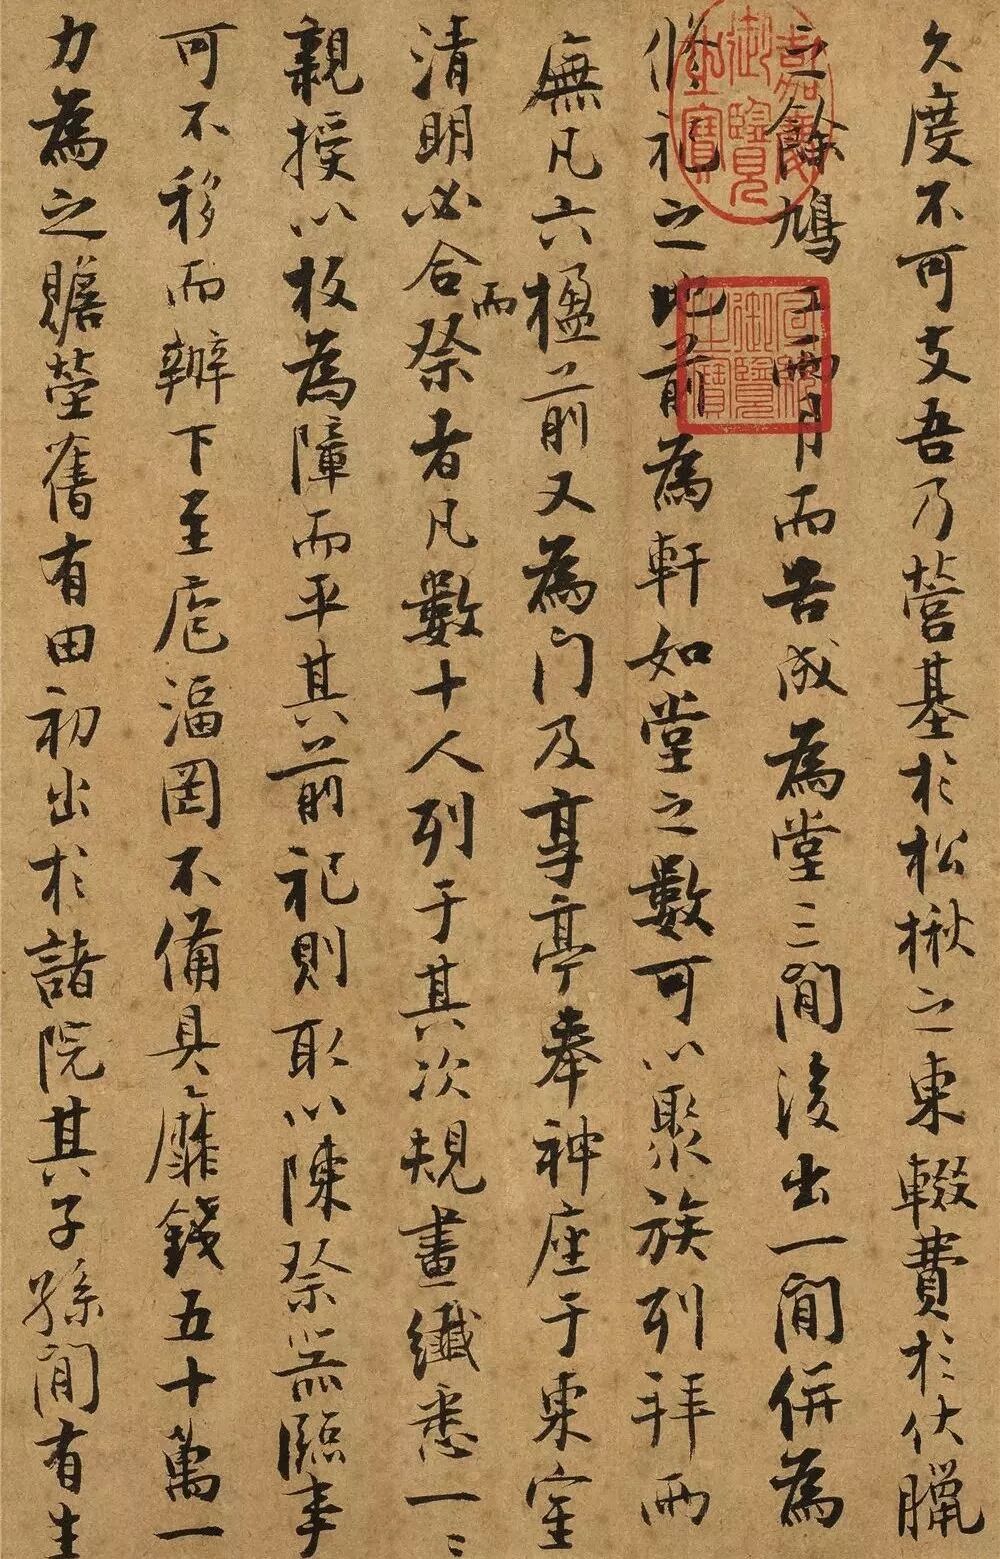 久度不可支吾乃營基於松楸之東輟費於伏臘
之餘鳩工兩月而告成為堂三間後出一間併為
修祀之地前為軒如堂之數可以聚族列拜兩
廡凡六楹前又為門及享亭奉神座于東室
清明必合而祭者凡數十人列于其次規畫纖悉一〻
親授以板為障而平其前祀則取以陳祭器臨事
可不移而辦下至庖湢罔不備具靡錢五十萬一
力為之贍塋舊有田初出於諸院其子孫間有生
嘉慶御覽之寶
宣統御覽之寶